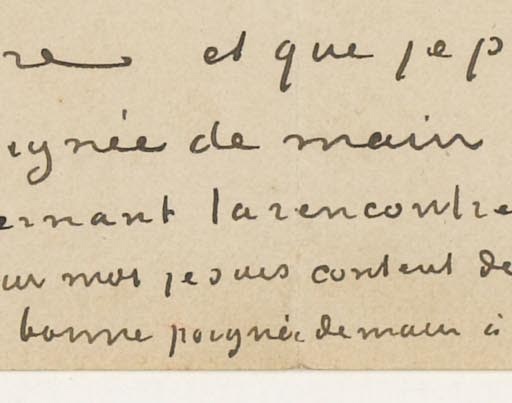 re et que je p
ignée de main
ernant la rencontre
ur moi je suis content de
bonne poignée de main à